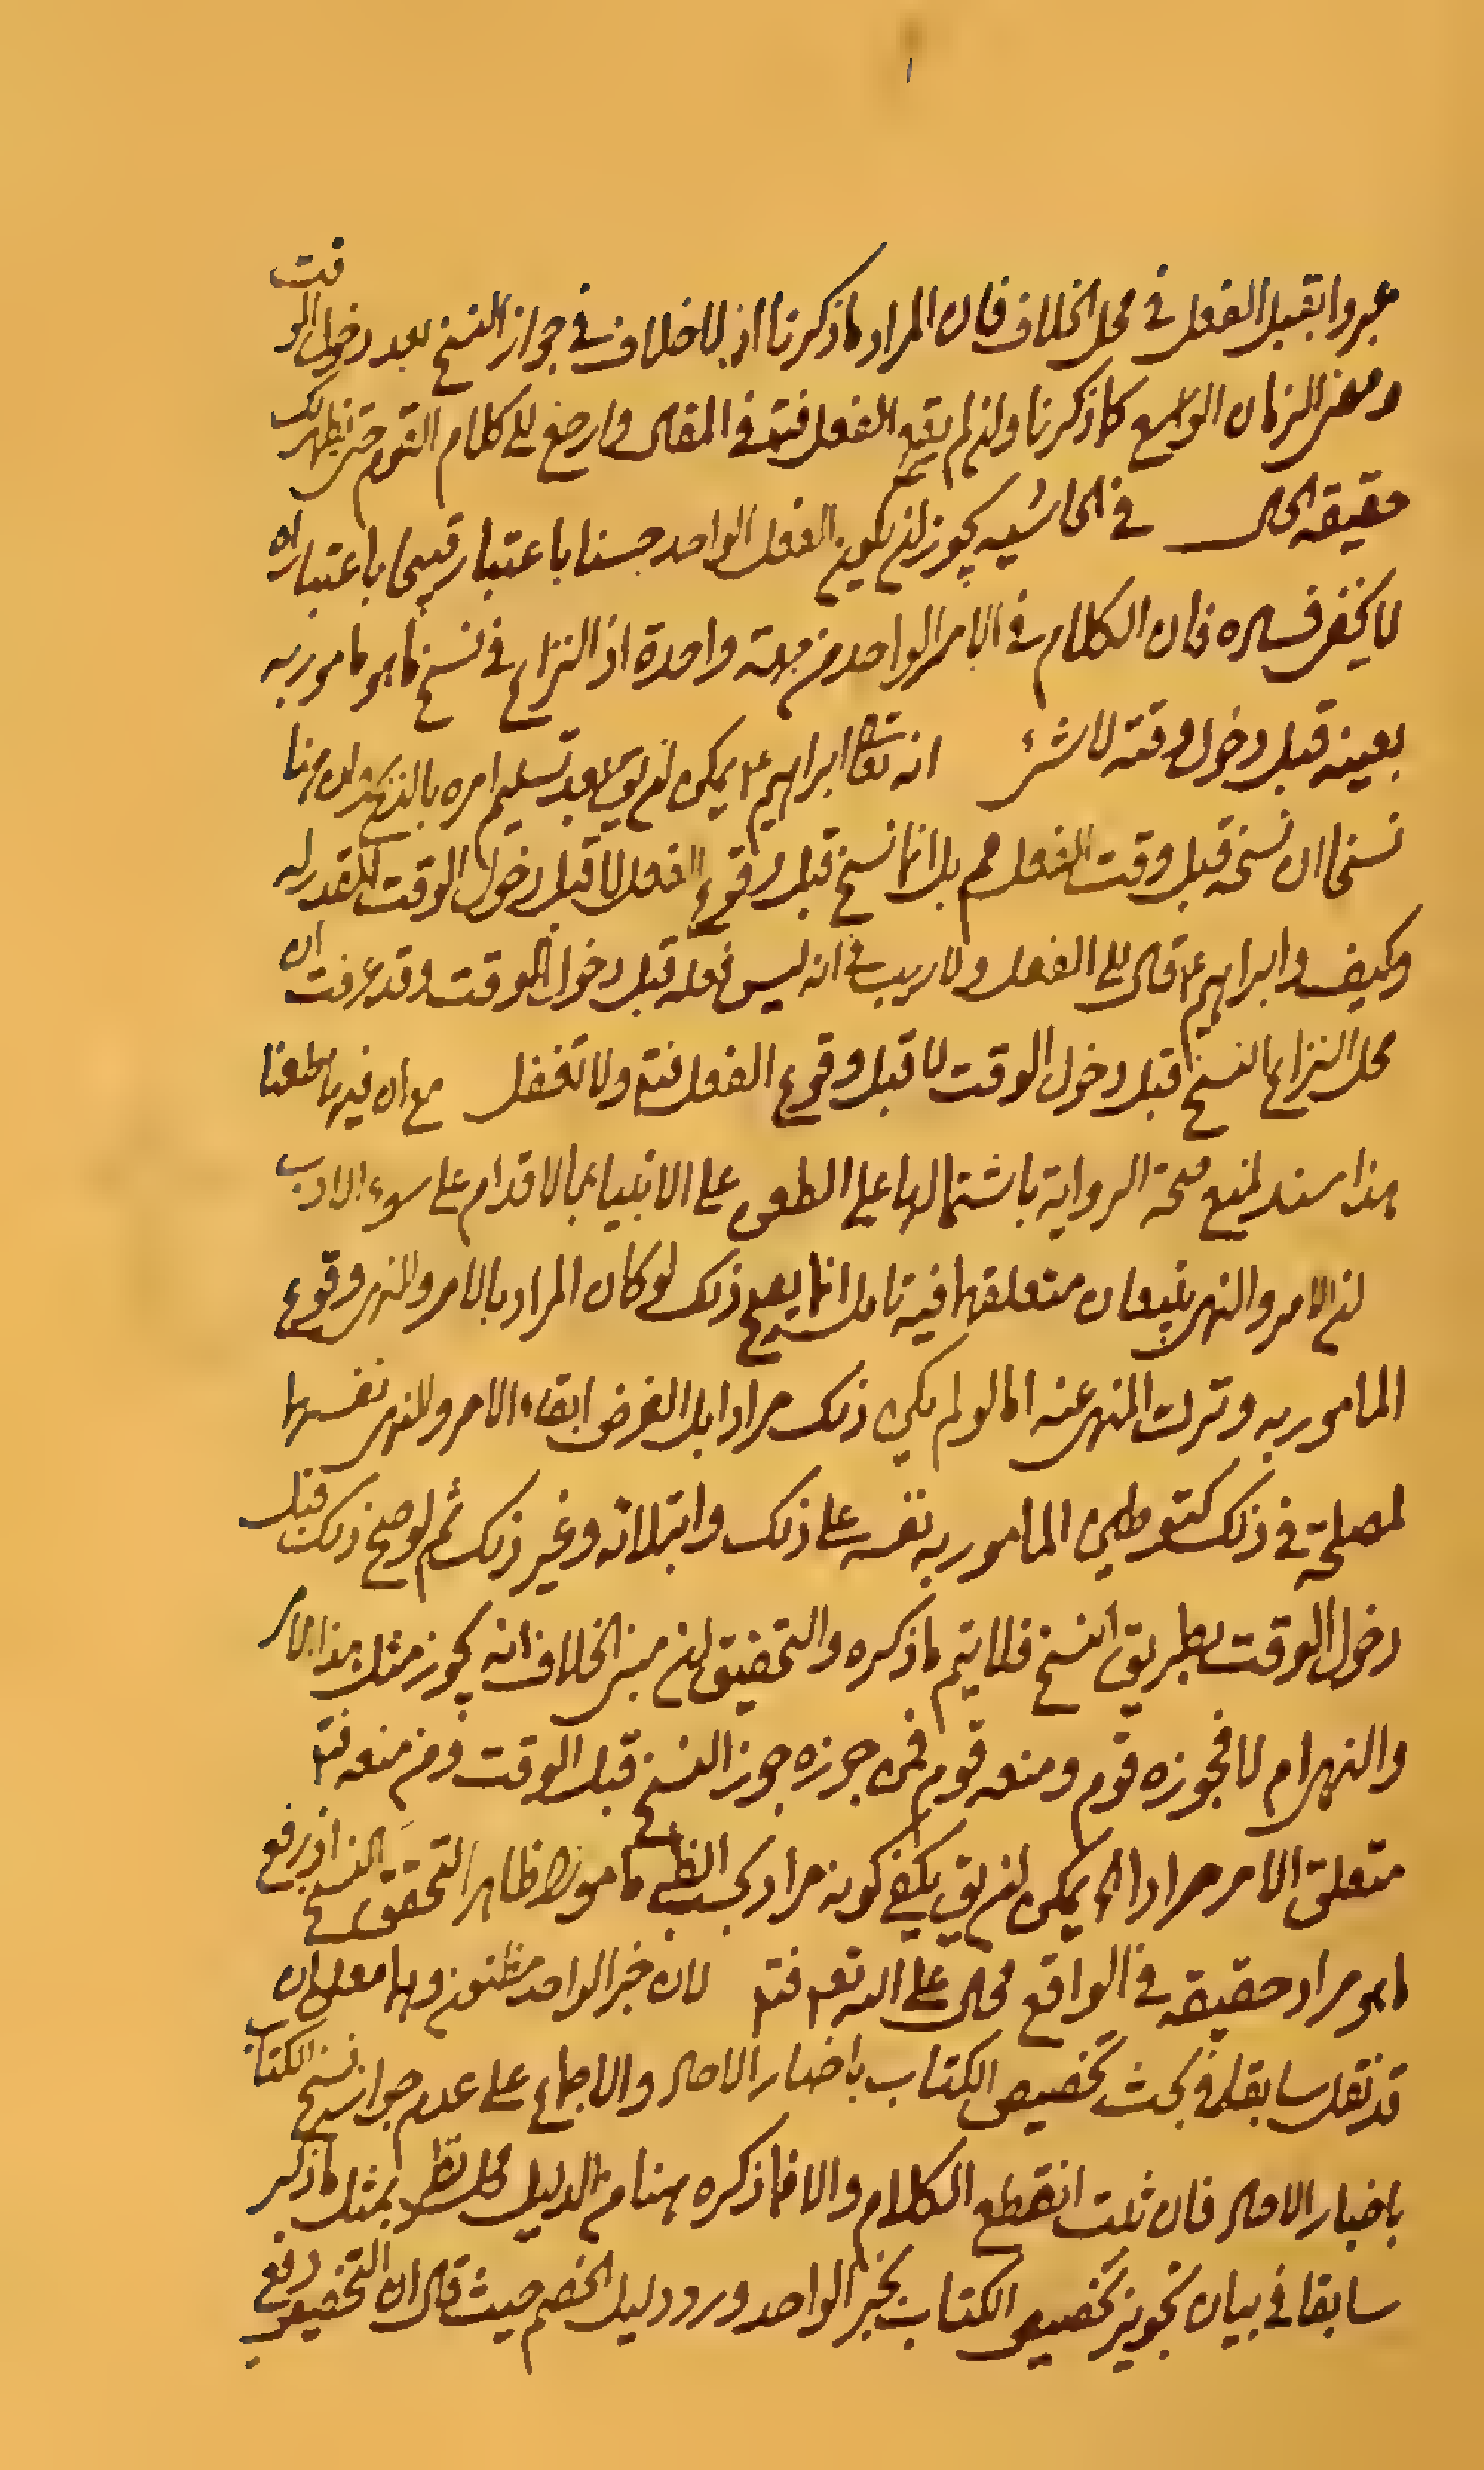 عبروا بقبل الفعل في محل الخلاف فان المراد ما ذكرنا اذ لا خلاف في جواز النسخ بعد دخول الوقت
ومضى الزمان الواسع كما ذكرنا ولن لم يقع الفعل فتم في المقال وارجع الى كلام القوم حتى يظهر لك
حقيقة الحال في الحاشيه يجوز ان يكون الفعل الواحد حسنا باعتبار قبيحا باعتبار اه
لا يخفى فساده فان الكلام في الامر الواحد من جهة واحدة اذ النزاع في نسخ ما هو مامور به
بعينه قبل دخول وقته لا شئ انه تعالى ابراهيم ع يمكن ان يق بعد تسليم امره بالذبح ان هنا
نسخا ان نسخه قبل وقت الفعل مم بل انما نسخ قبل وقوع الفعل لا قبل دخول الوقت المقدر له
وكيف وابراهيم ع قال الى الفعل ولا ريب في انه ليس فعله قبل دخول الوقت وقد عرفت ان
محل النزاع النسخ قبل دخول الوقت لا قبل وقوع الفعل فتم ولا تغفل مع ان فيه ما طعنا
هذا سند لمنع صحة الرواية باشتمالها على الطعن على الانبياء بالاقدام على سوء الادب
ان الامر والنهى يتبعان متعلقهما فيه تامل انما يصح ذلك لو كان المراد بالامر والنهى وقوع
المامور به وترك المنهى عنه اما لو لم يكن ذلك مرادا بل الغرض ابقاء الامر والنهى نفسهما
لمصلحة في ذلك كتوطين المامور به نفسه على ذلك وابتلائه وغير ذلك ثم لو صح ذلك قبل
دخول الوقت بطريق النسخ فلا يتم ما ذكره والتحقيق ان مبنى الخلاف انه يجوز مثل هذا الامر
والنهى ام لا فجوزه قوم ومنعه قوم فمن جوزه جوز النسخ قبل الوقت ومن منعه فتم
متعلق الامر مرادا اه يمكن ان يق يكفى كونه مراد بحسب الظ ما مور ظاهرا لتحقق النسخ اذ رفع
ما هو مراد حقيقه في الواقع محال على الله تعه فتم لان خبر الواحد مظنون وهما معلومان
قد نقل سابقا في بحث تخصيص الكتاب باخبار الاحاد والاجماع على عدم جواز نسخ الكتاب
باخبار الاحاد فان ثبت انقطع الكلام والا فما ذكره هنا من الدليل محل نظر بمثل ما ذكر
سابقا في بيان تجويز تخصيص الكتاب بخبر الواحد ورد دليل الخصم حيث قال ان التخصيص رفع